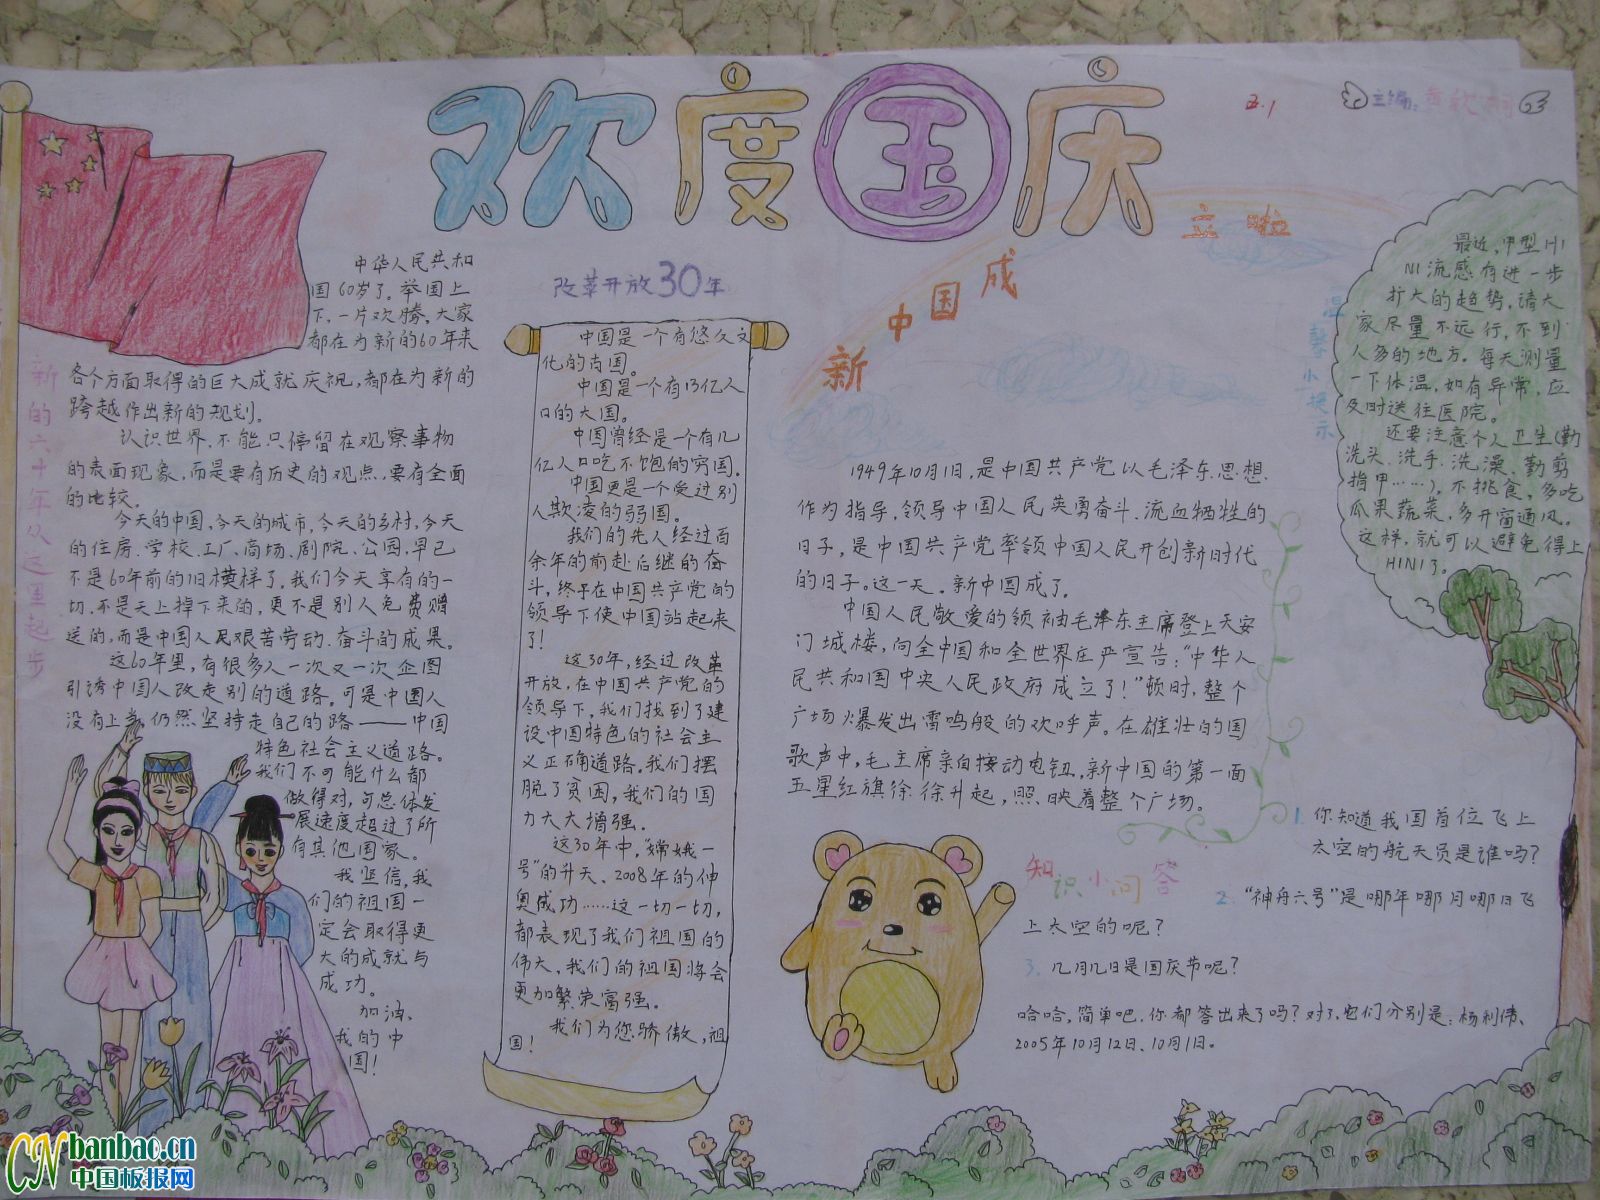 欢度国庆
五.1
主编:
新的六十年从这里起步
中华人民共和
国60岁了。举国上
下,一片欢腾。大家
都在为新的60年来
各个方面取得的巨大成就庆祝,都在为新的
跨越作出新的规划.
认识世界,不能只停留在观察事物
的表面现象,而是要有历史的观点,要有全面
的比较。
今天的中国,今天的城市,今天的乡村,今天
的住房、学校、工厂、商场、剧院、公园,早已
不是60年前的旧模样了。我们今天享有的一
切,不是天上掉下来的,更不是别人免费赠
送的,而是中国人民艰苦劳动、奋斗的成果。
这60年里,有很多人一次又一次企图
引诱中国人改走别的道路。可是中国人
没有上当,仍然坚持走自己的路——中国
特色社会主义道路。
我们不可能什么都
做得对,可总体发
展速度超过了所
有其他国家。
我坚信,我
们的祖国一
定会取得更
大的成就与
成功。
加油、
我的中
国!
改革开放30年
中国是一个有悠久文
化的古国。
中国是一个有13亿人
口的大国。
中国曾经是一个有几
亿人口吃不饱的穷国。
中国更是一个受过别
人欺凌的弱国。
我们的先人经过百
余年的前赴后继的奋
斗,终于在中国共产党的
领导下使中国站起来
了!
这30年,经过改革
开放,在中国共产党的
领导下,我们找到了建
设中国特色的社会主
义正确道路。我们摆
脱了贫困,我们的国
力大大增强.
这30年中,“嫦娥一
号”的升天、2008年的神
奥成功……这一切一切,
都表现了我们祖国的
伟大,我们的祖国将会
更加繁荣富强。
我们为您骄傲,祖
国!
新中国成立啦
1949年10月1日,是中国共产党以毛泽东思想
作为指导,领导中国人民英勇奋斗、流血牺牲的
日子,是中国共产党率领中国人民开创新时代
的日子。这一天、新中国成了.
中国人民敬爱的领袖毛泽东主席登上天安
门城楼,向全中国和全世界庄严宣告:“中华人
民共和国中央人民政府成立了!”顿时,整个
广场火爆发出雷鸣般的欢呼声。在雄壮的国
歌声中,毛主席亲自按动电钮,新中国的第一面
五星红旗徐徐升起,照映着整个广场。
温馨小提示
最近,甲型H1
N1流感有进一步
扩大的趋势,请大
家尽量不远行,不到
人多的地方。每天测量
一下体温,如有异常,应
及时送往医院。
还要注意个人卫生(勤
洗头、洗手、洗澡、勤剪
指甲……),不挑食,多吃
瓜果蔬菜,多开窗通风。
这样,就可以避免得上
H1N1了。
知识小问答
1.你知道我国首位飞上
太空的航天员是谁吗?
2.“神舟六号”是哪年哪月哪日飞
上太空的呢?
3.几月几日是国庆节呢?
哈哈,简单吧.你都答出来了吗?对了,它们分别是:杨利伟、
2005年10月12日、10月1日。
CN banbao.cn
中国板报网